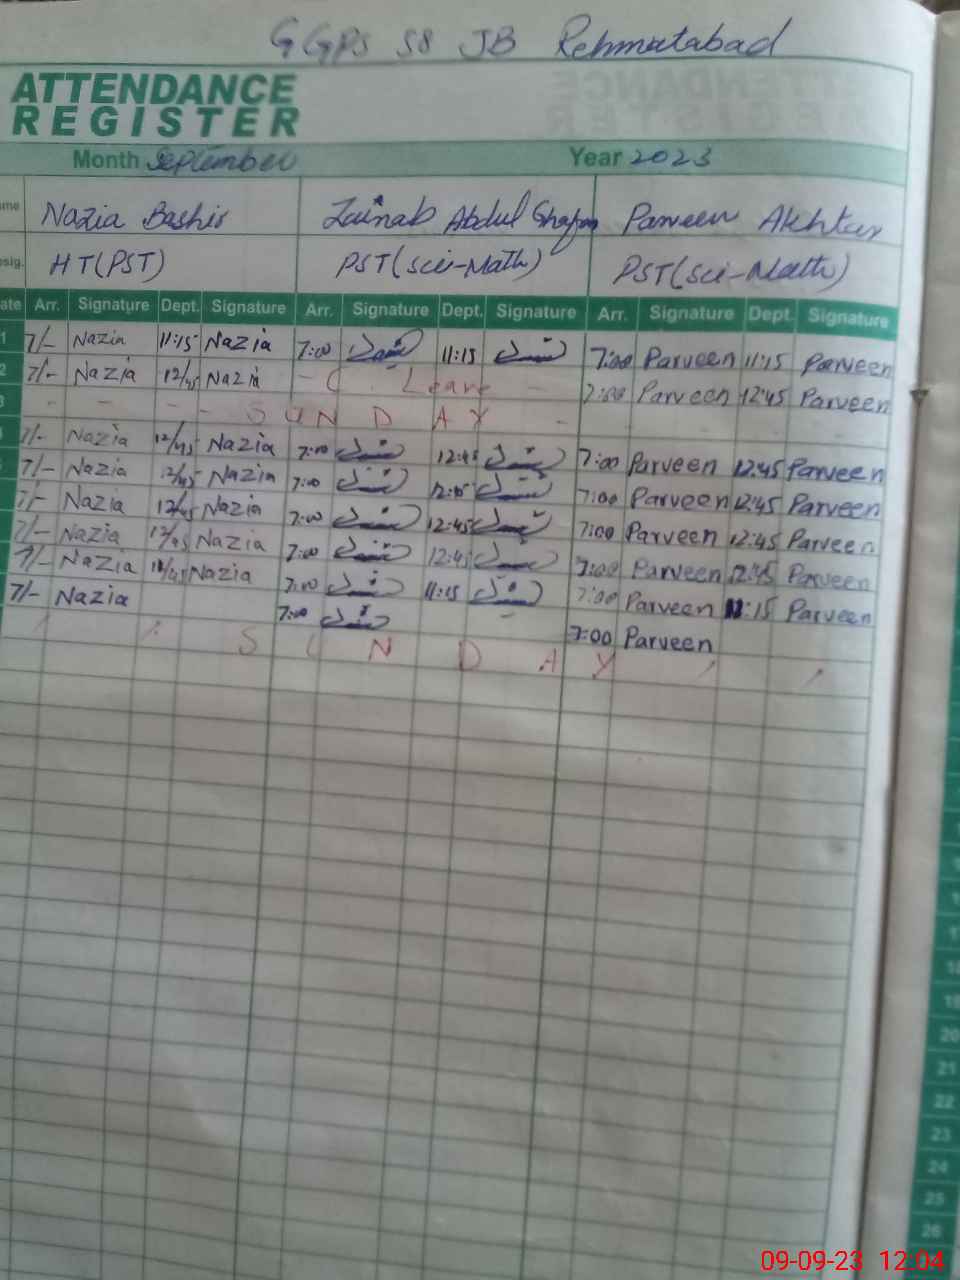 GGPS 58 JB Rehmatabad
ATTENDANCE
REGISTER
Month September Year 2023
me Nazia Bashir Zainab Abdul Ghafoor Parveen Akhtar
sig. HT(PST) PST(sci-Math) PST(sci-Math)
ate Arr. Signature Dept. Signature Arr. Signature Dept. Signature Arr. Signature Dept. Signature
1 7/- Nazia 11:15 Nazia 7:00 11:15 7:00 Parveen 11:15 Parveen
2 7/- Nazia 12/45 Nazia - C. Leave - 7:00 Parveen 12:45 Parveen
3 - - - - S U N D A Y - - -
7/- Nazia 12/45 Nazia 7:00 12:45 7:00 Parveen 12:45 Parveen
7/- Nazia 12/45 Nazia 7:00 7:00 Parveen 12:45 Parveen
7/- Nazia 12/45 Nazia 7:00 12:45 7:00 Parveen 12:45 Parveen
7/- Nazia 12/45 Nazia 7:00 12:45 7:00 Parveen 12:45 Parveen
7/- Nazia Nazia 7:00 11:15 7:00 Parveen 11:15 Parveen
7/- Nazia 7:00 - 7:00 Parveen
S U N D A Y
18
19
20
21
22
23
24
25
26
09-09-23 12:04